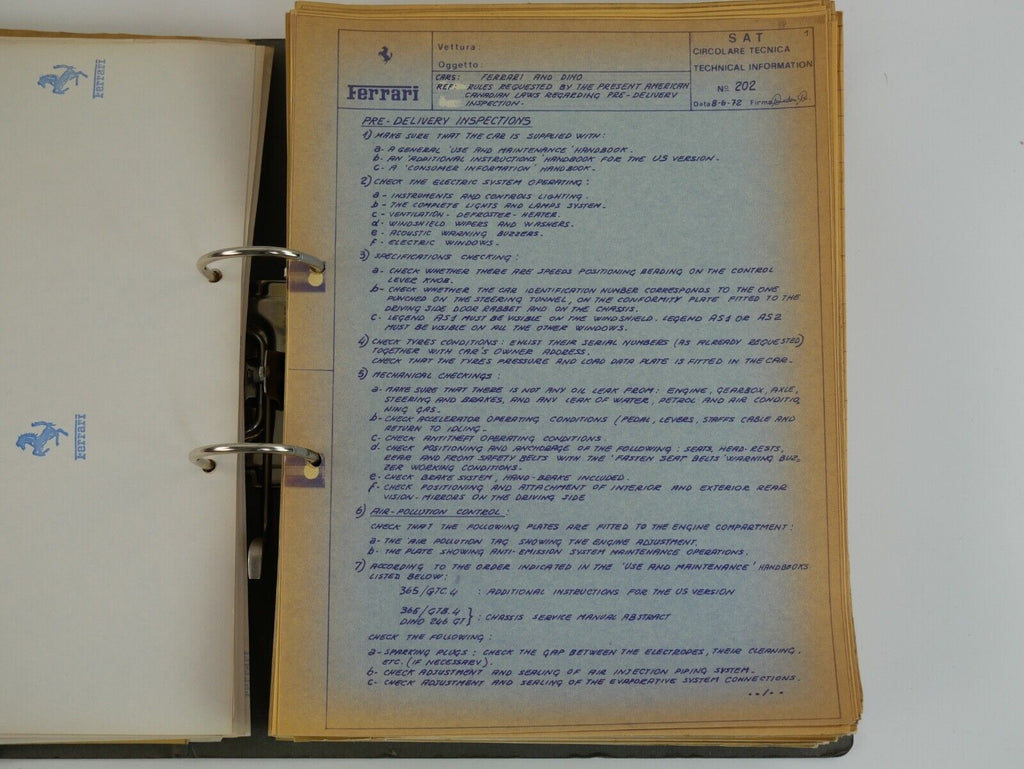 Ferrari
Ferrari
Ferrari
Vettura:
Oggetto:
CARS: FERRARI AND DINO
REF: RULES REQUESTED BY THE PRESENT AMERICAN
CANADIAN LAWS REGARDING PRE-DELIVERY
INSPECTION.
SAT
CIRCOLARE TECNICA
TECHNICAL INFORMATION
No. 202
Data 8-6-72 Firma
1
PRE-DELIVERY INSPECTIONS
1) MAKE SURE THAT THE CAR IS SUPPLIED WITH:
a- A GENERAL 'USE AND MAINTENANCE' HANDBOOK.
b- AN 'ADDITIONAL INSTRUCTIONS' HANDBOOK FOR THE US VERSION.
c- A 'CONSUMER INFORMATION' HANDBOOK.
2) CHECK THE ELECTRIC SYSTEM OPERATING:
a- INSTRUMENTS AND CONTROLS LIGHTING.
b- THE COMPLETE LIGHTS AND LAMPS SYSTEM.
c- VENTILATION- DEFROSTER- HEATER.
d- WINDSHIELD WIPERS AND WASHERS.
e- ACOUSTIC WARNING BUZZERS.
f- ELECTRIC WINDOWS.
3) SPECIFICATIONS CHECKING:
a- CHECK WHETHER THERE ARE SPEEDS POSITIONING READING ON THE CONTROL
LEVER KNOB.
b- CHECK WHETHER THE CAR IDENTIFICATION NUMBER CORRESPONDS TO THE ONE
PUNCHED ON THE STEERING TUNNEL, ON THE CONFORMITY PLATE FITTED TO THE
DRIVING SIDE DOOR RABBET AND ON THE CHASSIS.
c- LEGEND AS1 MUST BE VISIBLE ON THE WINDSHIELD. LEGEND AS1 OR AS2
MUST BE VISIBLE ON ALL THE OTHER WINDOWS.
4) CHECK TYRES CONDITIONS: ENLIST THEIR SERIAL NUMBERS (AS ALREADY REQUESTED)
TOGETHER WITH CAR'S OWNER ADDRESS.
CHECK THAT THE TYRES PRESSURE AND LOAD DATA PLATE IS FITTED IN THE CAR-
5) MECHANICAL CHECKINGS:
a- MAKE SURE THAT THERE IS NOT ANY OIL LEAK FROM: ENGINE, GEARBOX, AXLE,
STEERING AND BRAKES, AND ANY LEAK OF WATER, PETROL AND AIR CONDITIO
NING GAS-
b- CHECK ACCELERATOR OPERATING CONDITIONS (PEDAL, LEVERS, STAFFS CABLE AND
RETURN TO IDLING-
c- CHECK ANTITHEFT OPERATING CONDITIONS.
d- CHECK POSITIONING AND ANCHORAGE OF THE FOLLOWING: SEATS, HEAD-RESTS,
REAR AND FRONT SAFETY BELTS WITH THE 'FASTEN SEAT BELTS' WARNING BUZ-
ZER WORKING CONDITIONS-
e- CHECK BRAKE SYSTEM, HAND-BRAKE INCLUDED.
f- CHECK POSITIONING AND ATTACHMENT OF INTERIOR AND EXTERIOR REAR
VISION-MIRRORS ON THE DRIVING SIDE
6) AIR-POLLUTION CONTROL:
CHECK THAT THE FOLLOWING PLATES ARE FITTED TO THE ENGINE COMPARTMENT:
a- THE AIR POLLUTION TAG SHOWING THE ENGINE ADJUSTMENT.
b- THE PLATE SHOWING ANTI-EMISSION SYSTEM MAINTENANCE OPERATIONS.
7) ACCORDING TO THE ORDER INDICATED IN THE 'USE AND MAINTENANCE' HANDBOOKS
LISTED BELOW:
365/GTC.4 : ADDITIONAL INSTRUCTIONS FOR THE US VERSION
365/GTB.4
DINO 246 GT } : CHASSIS SERVICE MANUAL ABSTRACT
CHECK THE FOLLOWING:
a- SPARKING PLUGS: CHECK THE GAP BETWEEN THE ELECTRODES, THEIR CLEANING.
ETC. (IF NECESSARY).
b- CHECK ADJUSTMENT AND SEALING OF AIR INJECTION PIPING SYSTEM-
c- CHECK ADJUSTMENT AND SEALING OF THE EVAPORATIVE SYSTEM CONNECTIONS.
--/--